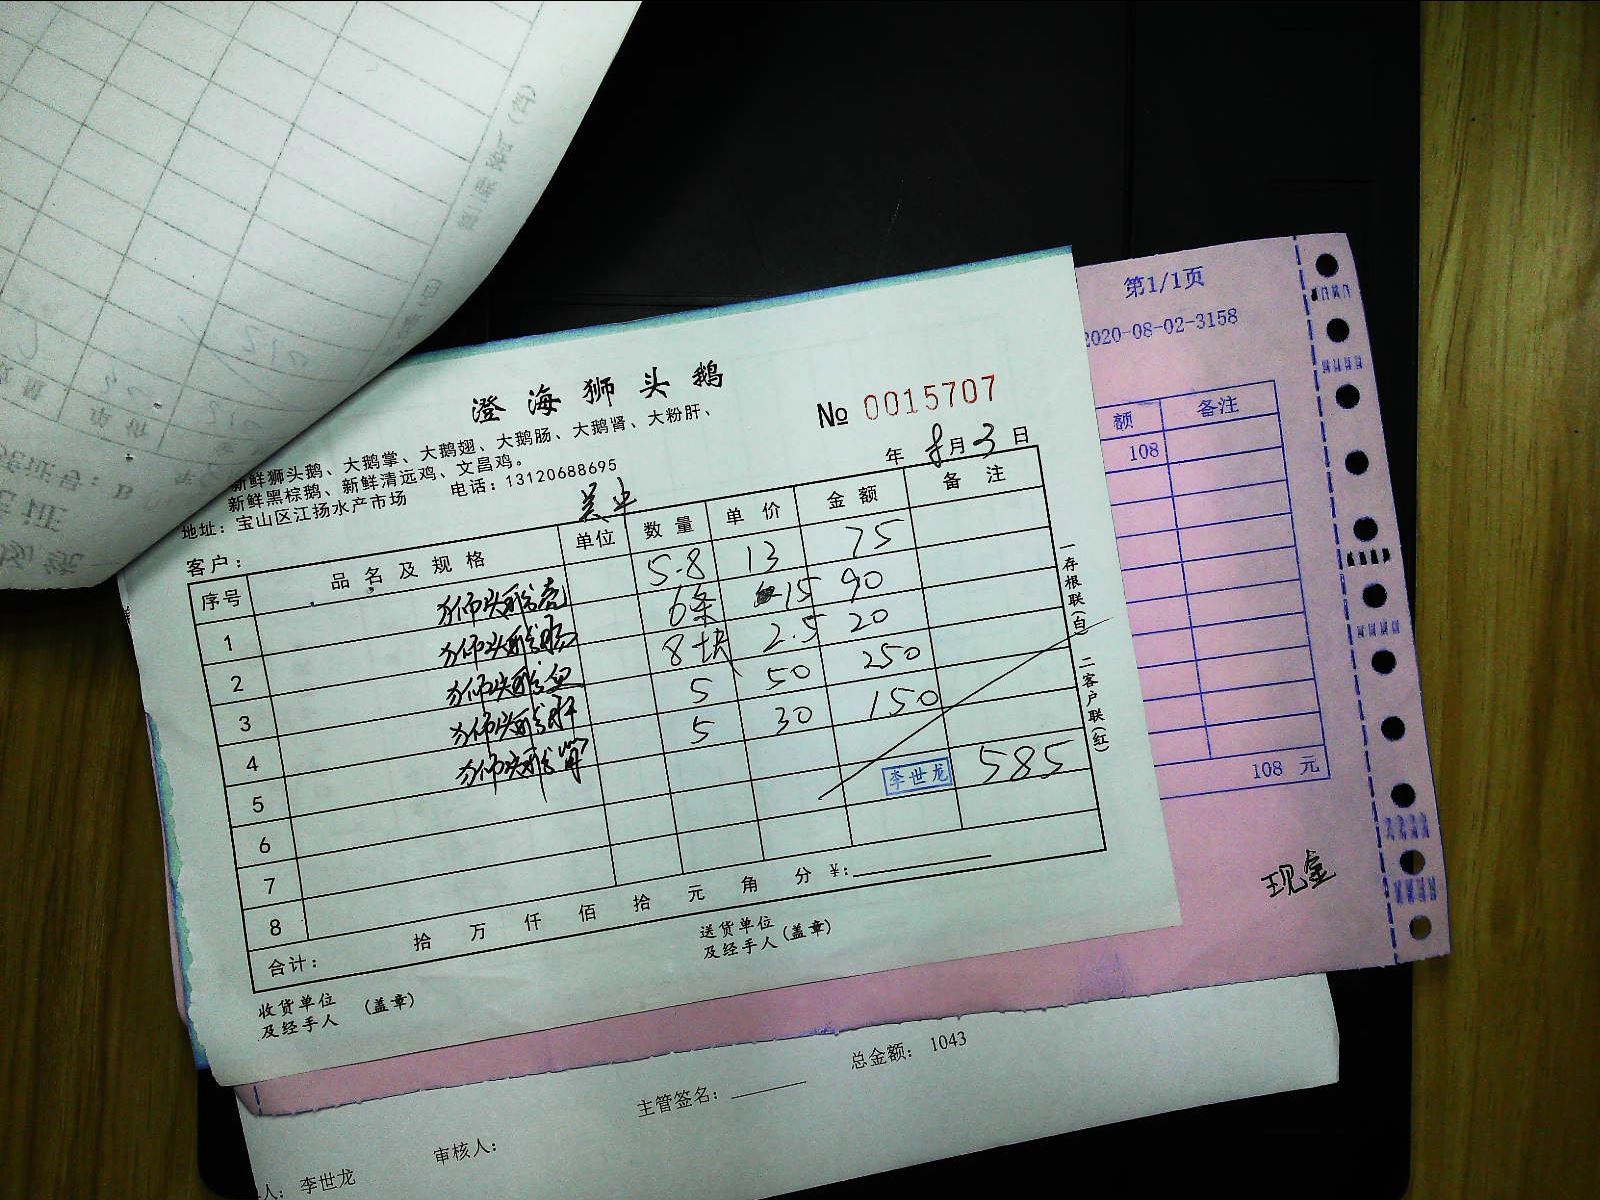 澄海狮头鹅
№ 0015707
新鲜狮头鹅、大鹅掌、大鹅翅、大鹅肠、大鹅肾、大粉肝、
新鲜黑棕鹅、新鲜清远鸡、文昌鸡。
地址：宝山区江扬水产市场 电话：13120688695
年 8月3日
客户：
序号 品名及规格 单位 数量 单价 金额 备注
1 狮头鹅壳 5.8 13 75
2 狮头鹅肠 6条 15 90
3 狮头鹅血 8块 2.5 20
4 狮头鹅肝 5 50 250
5 狮头鹅 5 30 150
6
7 李世龙 585
8
合计： 拾 万 仟 佰 拾 元 角 分 ¥:
收货单位
及经手人 (盖章)
送货单位
及经手人(盖章)
一存根联(白) 二客户联(红)
第1/1页
2020-08-02-3158
额 备注
108
108 元
现金
总金额： 1043
主管签名：
审核人：
人： 李世龙